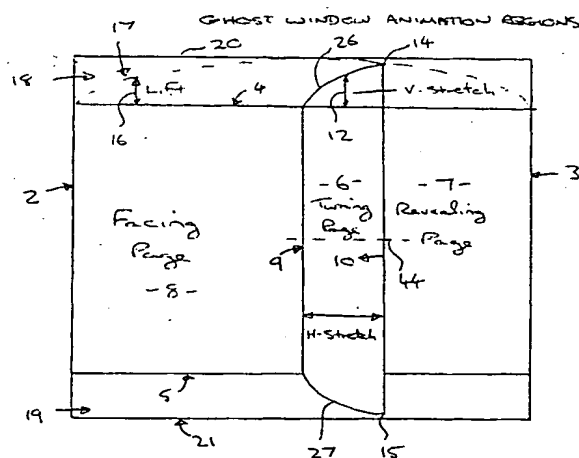 GHOST WINDOW ANIMATION REGIONS
17
20
26
14
18
Lift
4
V.stretch
16
12
2
3
-6-
Turning
Page
-7-
Revealing
Page
Facing
Page
-8-
9
10
44
H-Stretch
5
19
21
27
15